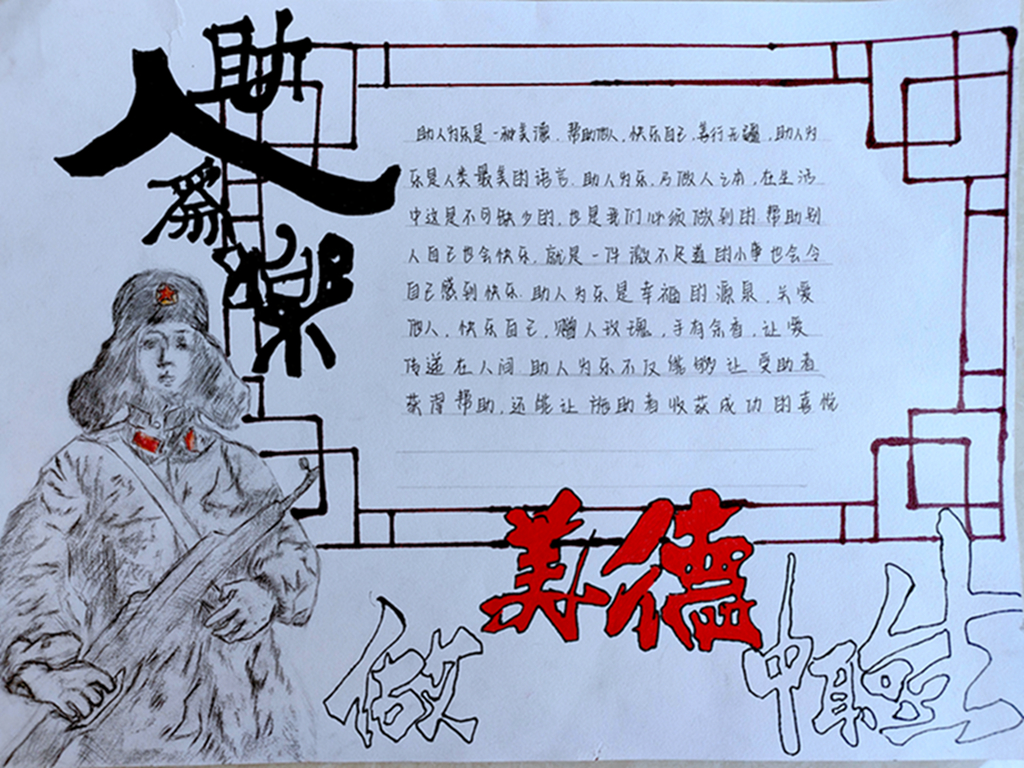 助人為樂
助人为乐是一种美德，帮助他人，快乐自己，善行无疆，助人为
乐是人类最美的语言．助人为乐，乃做人之本，在生活
中这是不可缺少的，也是我们必须做到的．帮助别
人自己也会快乐，就是一件微不足道的小事也会令
自己感到快乐．助人为乐是幸福的源泉，关爱
他人，快乐自己，赠人玫瑰，手有余香，让爱
传递在人间．助人为乐不仅能够让受助者
获得帮助，还能让施助者收获成功的喜悦
做美德中职生